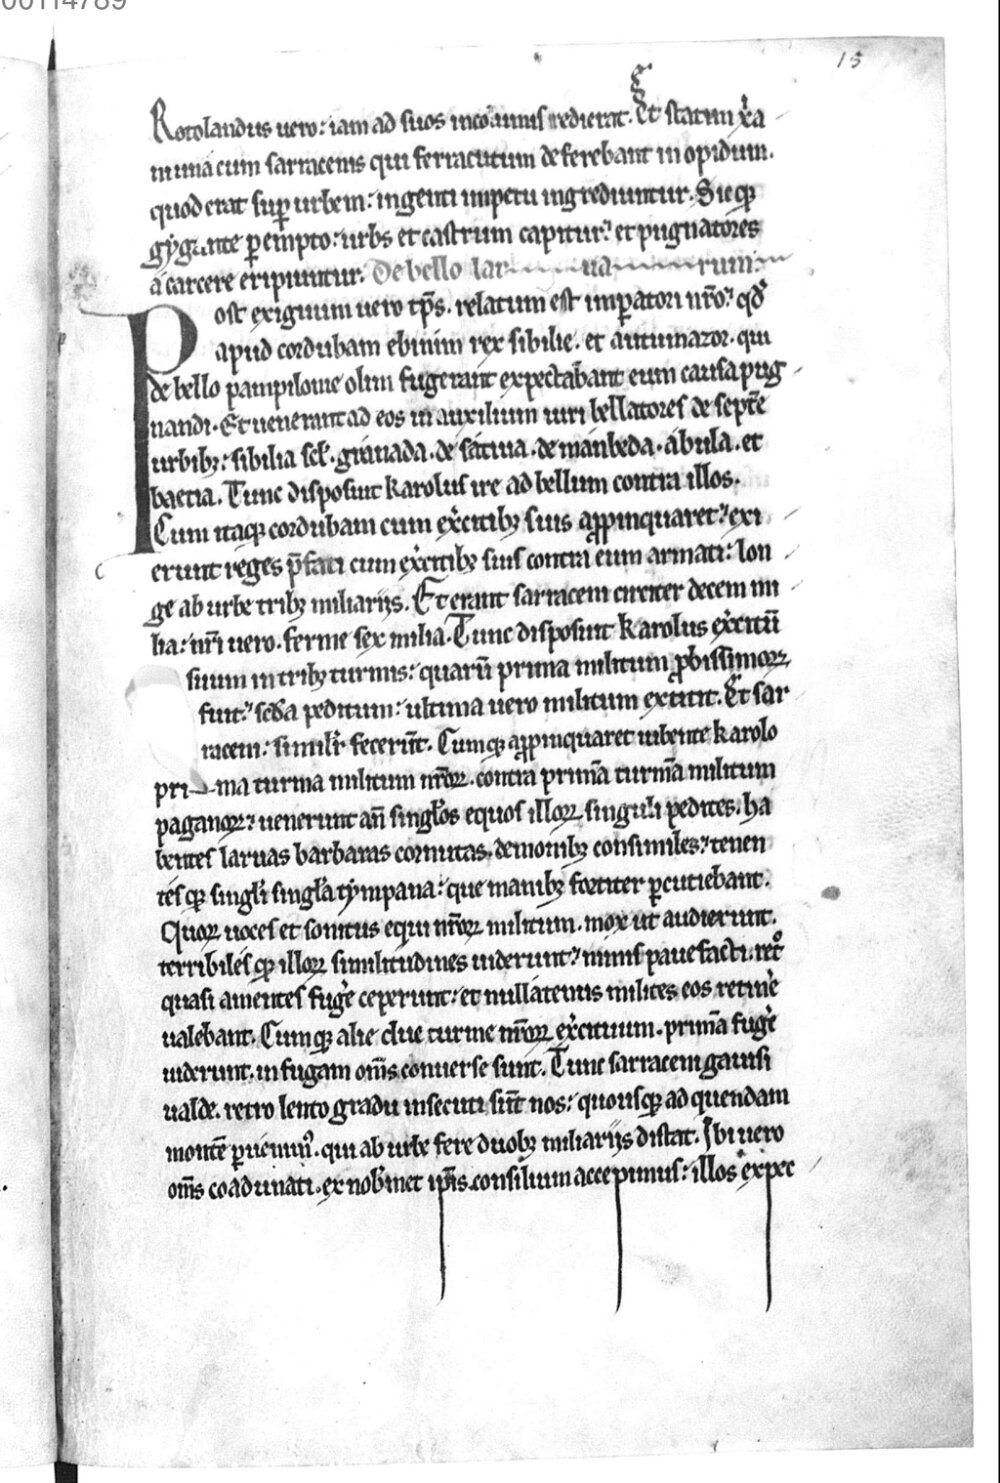 00114789
15
Rotolandus uero: iam ad suos incolumis redierat. Et statim xp̄ia
ni una cum sarracenis qui ferracutum deferebant in opidum.
quod erat sup̄ urbem: ingenti impetu ingrediuntur. Sicq̄
gygante p̄empto: urbs et castrum capitur: et pugnatores
a carcere eripiuntur. De bello laruarum
Post exiguum uero tp̄s. relatum est imp̄atori nr̄o: qd̄
apud cordubam ebinim rex sibilie. et autumazor. qui
de bello pampilonie olim fugerant expectabant eum causa pug
nandi. Et uenerant ad eos in auxilium uiri bellatores de septē
urbibȝ: sibilia scł. granada. de satiua. de manbeda. abula. et
baetia. Tunc disposuit karolus ire ad bellum contra illos.
Cum itaq̄ cordubam cum ex̄citibȝ suis app̄inquaret: exi
erunt reges p̄fati cum ex̄citibȝ suis contra eum armati: lon
ge ab urbe tribȝ miliariis. Et erant sarraceni circiter decem mi
lia: nr̄i uero. ferme sex milia. Tunc disposuit karolus ex̄citū
suum in tribȝ turmis: quarū prima militum p̄bissimoꝝ
fuit: scd̄a peditum: ultima uero militum extitit. Et sar
raceni: similr̄ fecerūt. Cumq̄ app̄inquaret iubente karolo
pri-ma turma militum nr̄oꝝ. contra primā turmā militum
paganoꝝ: uenerunt an̄ singłos equos illoꝝ singuli pedites. ha
bentes laruas barbaras cornutas. demonibȝ consimiles: tenen
tesq̄ singłi singła tympana: que manibȝ fortiter p̄cutiebant.
Quoꝝ uoces et sonitus equi nr̄oꝝ militum. mox ut audierunt.
terribilesq̄ illoꝝ similitudines uiderunt: nimis pauefacti. ret̊
quasi amentes fuḡe ceperunt: et nullatenus milites eos retin̄e
ualebant. Cumq̄ alie due turme nr̄oꝝ ex̄cituum. primā fuḡe
uiderunt. in fugam om̄s conuerse sunt. Tunc sarraceni gauisi
ualde. retro lento gradu insecuti sūt nos: quousq̄ ad quendam
montē p̄uenim᾽. qui ab urbe fere duobȝ miliariis distat. Ibi uero
om̄s coadunati. ex nob̄met ip̄is consilium accepimus: illos expec